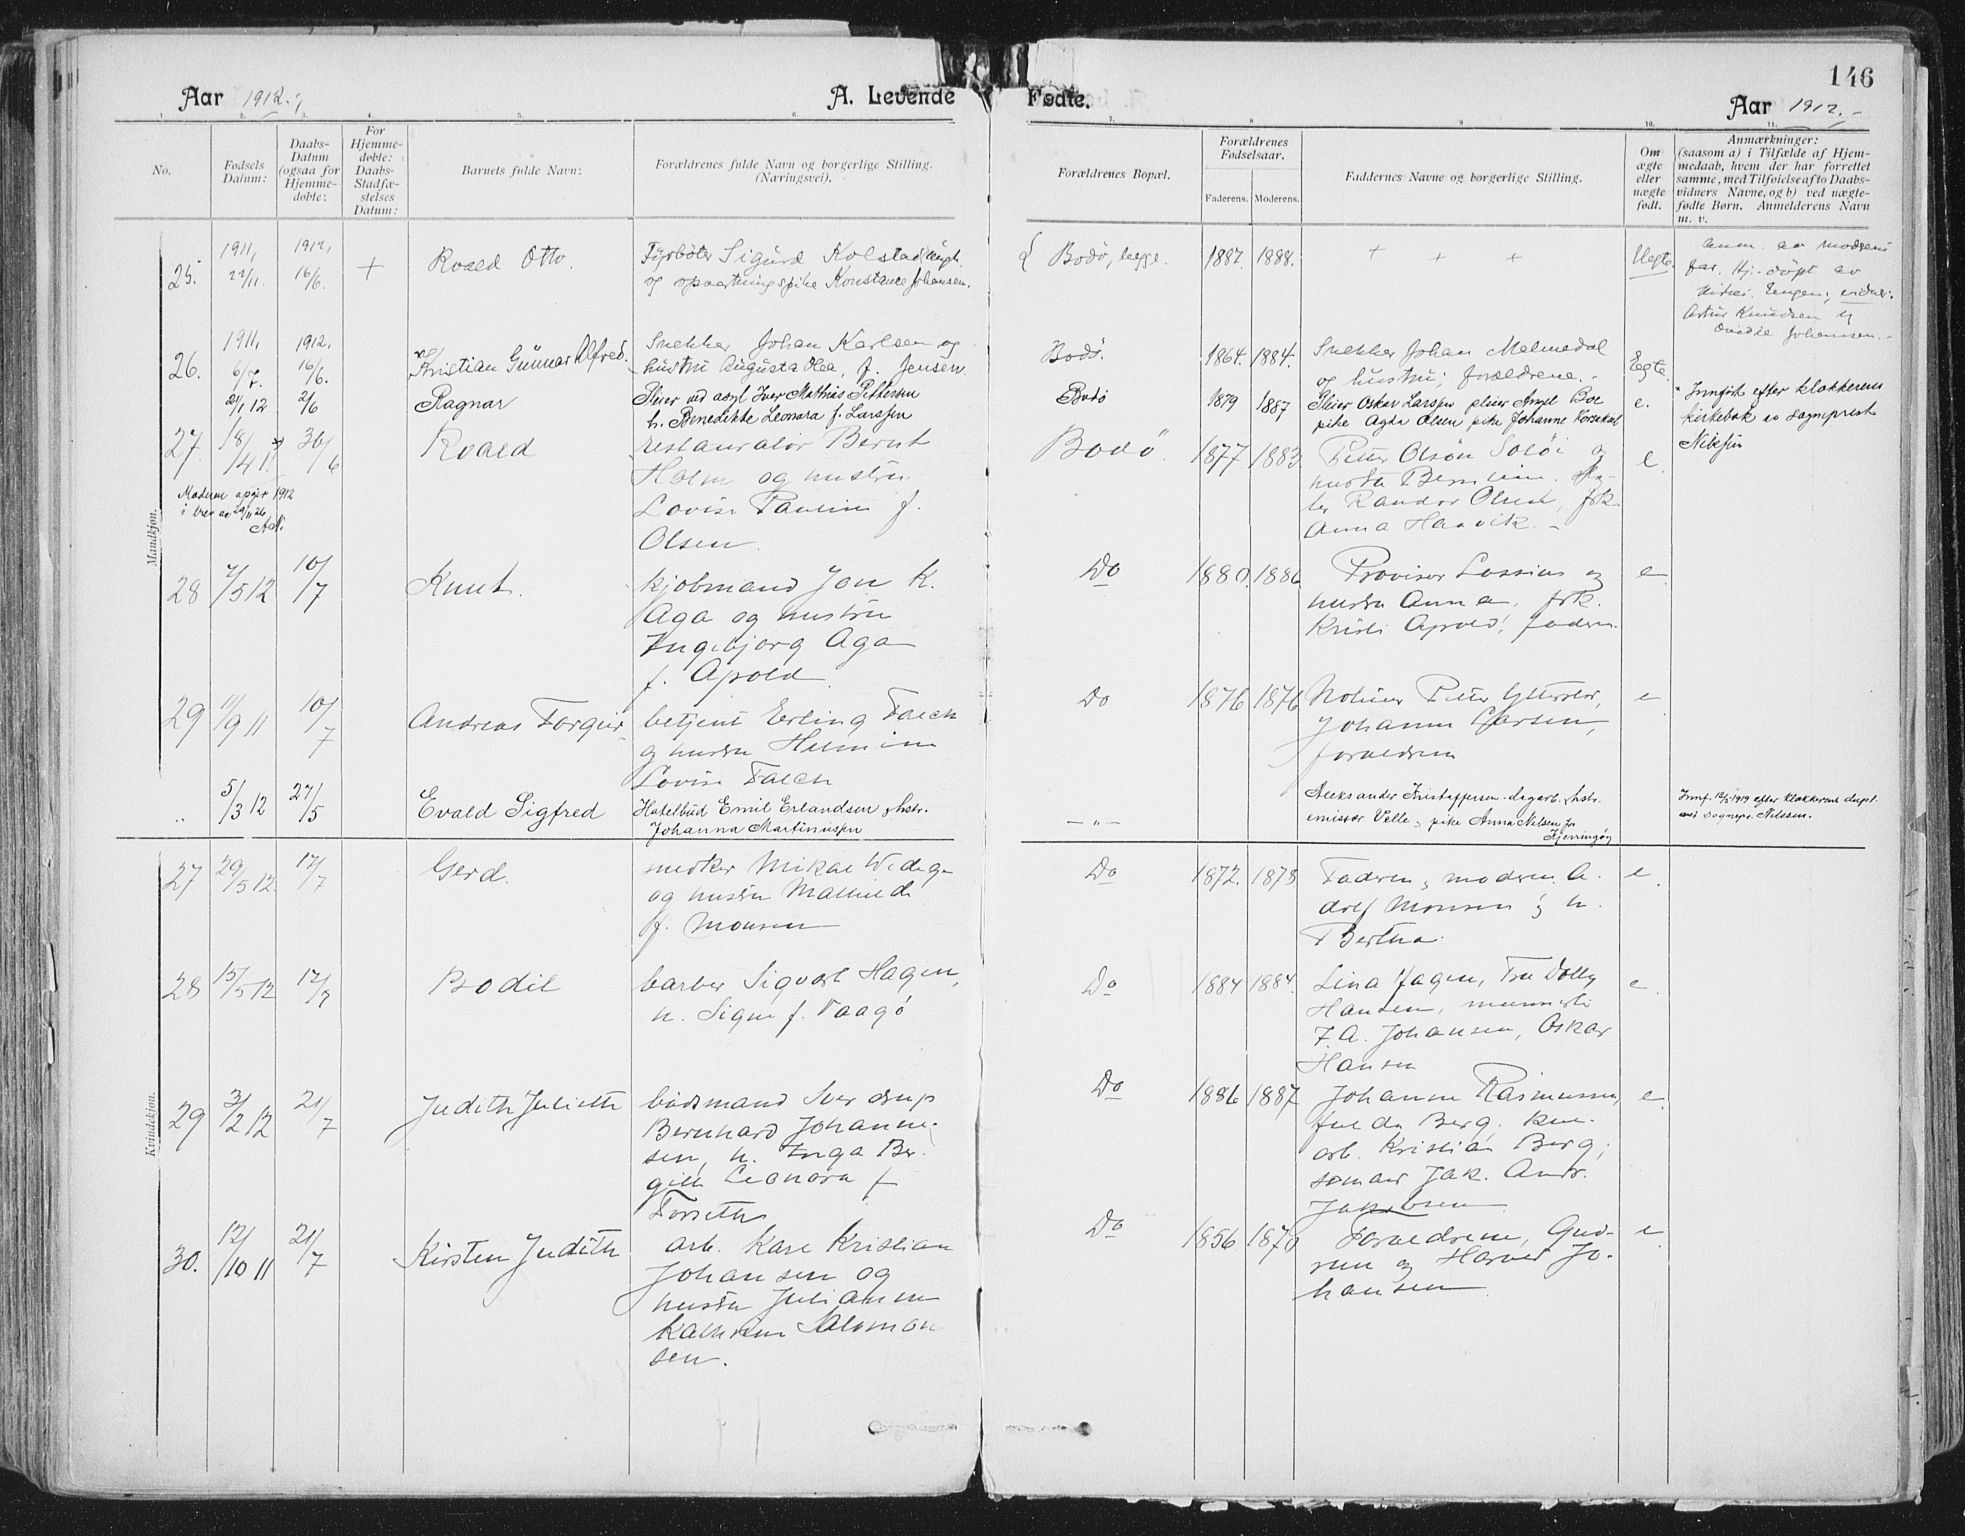 146
Aar 1912.
A. Levende
Fødte.
Aar 1912.
1.
2.
3.
4.
5.
6.
7.
8.
9.
10.
11.
No.
Fødsels
Datum:
Daabs-
Datum
(ogsaa for
Hjemme-
døbte:
For
Hjemme-
døbte:
Daabs-
Stadfæ-
stelses
Datum:
Barnets fulde Navn:
Forældrenes fulde Navn og borgerlige Stilling.
(Næringsvei).
Forældrenes Bopæl.
Forældrenes
Fødselsaar.
Faderens.
Moderens.
Faddernes Navne og borgerlige Stilling.
Om
ægte
eller
nægte
født.
Anmærkninger:
(saasom a) i Tilfælde af Hjem-
medaab, hvem der har forrettet
samme, med Tilføielse af to Daabs-
vidners Navne, og b) ved nægte-
fødte Børn. Anmelderens Navn
m. v.
Mandkjøn.
25.
1911, 22/11.
1912, 16/6.
+
Roald Otto.
Fyrbøter Sigurd Kolstad
og opvartningspike Konstance Johansen.
Bodø,
1887.
1888.
+ + +
Uegte.
Anm. av moderens
far. Hj. døpt av
Engen; vidner:
Artur Knudsen og
Johansen.
26.
1911, 6/7.
1912, 16/6.
Kristian Gunnar Alfred.
Snekker Johan Karlsen og
hustru Augusta Olea, f. Jensen.
Bodø.
1864.
1884.
Snekker Johan Melmedal
og hustru; forældrene.
Egte.
21/1 12
2/6
Ragnar
Pleier ved asyl Iver Mathias Pettersen
h. Benedikte Leonora f. Larssen
Bodø
1879
1887
Pleier Oskar Larssen pleier Boe
pike Agda Olsen pike Johanne
e.
Innført efter klokkerens
kirkebok av sogneprest
Nilssen
27.
18/4 11
30/6
Roald
restauratør Bernt
Holm og hustru
Lovise Pauline f.
Olsen.
Bodø.
1877
1883
Petter Olsen og
hustru
Randor Olsen, frk.
Anna Haavik.
e
Moderen opgir 1912
i brev av 29/11 26
28
7/5 12
10/7
Knut.
kjøbmand Jon K.
Aga og hustru
Ingebjørg Aga
f. Apold.
Do
1880.
1886
Provisor Lossius og
hustru Anna, frk.
Kristi Apold, faderen.
e
29
11/9 11
10/7
Andreas Torgeir
betjent Erling Falch
og hustru Hermine
Lovise Falch
Do
1876
1876
Petter
Johanne Larsen,
forældrene
e
"
5/3 12
27/5
Evald Sigfred
Hotelbud Emil Erlandsen & hstr.
Johanna Martinussen
— " —
Aleksander Kristoffersen dagarb. & hstr.
emissær Velle & pike Anna Nilsen fr.
Kjerringøy
Innf. 12/5 1919 efter klokkerens dupl.
ved sognepr. Nilssen.
Kvindekjøn.
27
29/5 12.
17/7
Gerd.
Mikal
og hustru Mathilde
f. Monsen
Do
1872.
1878
Faderen, moderen, A-
dolf Monsen og h.
Bertha.
e.
28
15/5 12
17/7
Bodil
barber Sigvart Hagen,
h. Signe f. Vaagø
Do
1884
1884.
Lina Hagen, Fru Dolly
Hansen,
F. A. Johansen, Oskar
Hansen
e.
29
3/2 12
21/7
Judith Juliette
baadsmand Sverdrup
Bernhard Johanne-
sen, h. Inga Ber-
gitte Leonora f.
Forseth
Do
1886
1887
Johanne Rasmussen,
Berg,
arb. Kristian Berg,
sømand Jak. Andr.
Jakobsen
e
30.
12/10 11
21/7
Kirsten Judith
arb. Kare Kristian
Johansen og
hustru Julianne
Kathrine Salomon
sen.
Do
1856
1870
Forældrene, Gud-
run og Harald Jo-
hansen
e